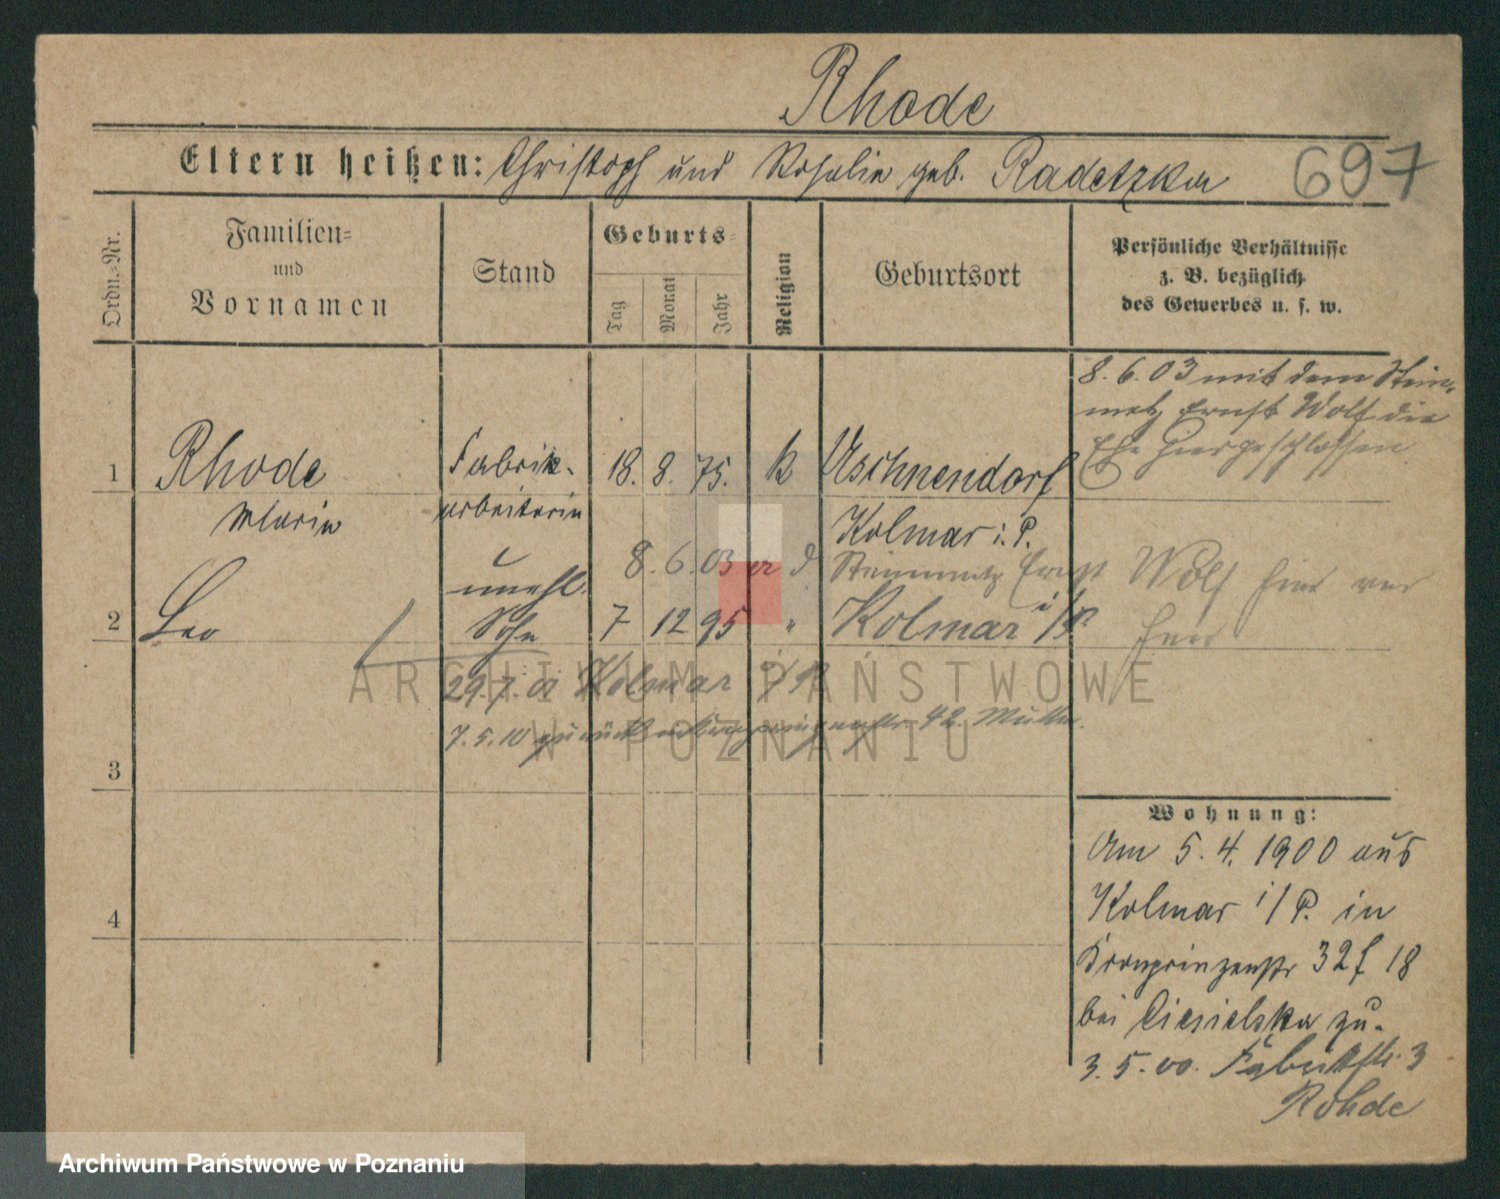 Rhode
Eltern heißen: Christoph und Rosalie geb. Radetzka
697
Ordn.-Nr.
Familien-
und
Vornamen
Stand
Geburts-
Tag
Monat
Jahr
Religion
Geburtsort
Persönliche Verhältnisse
z. B. bezüglich
des Gewerbes u. s. w.
8. 6. 03 mit dem Stein-
metz Ernst Wolf die
Ehe hier geschlossen
1 Rhode Fabrik- 18. 8. 75. k Uschnendorf
Maria arbeiterin Kolmar i. P.
8. 6. 03 Steinmetz Ernst Wolf
unehl.
2 Leo Sohn 7 12 95 " Kolmar i/P
29. 7. 01 Kolmar i/P
7. 5. 10 zurück 42. Mutter
3
4
Wohnung:
Am 5. 4. 1900 aus
Kolmar i/P. in
Kronprinzenstr 32 f 18
bei Ciesielska zu.
3. 5. 00. 3
Rohde
ARCHIWUM PAŃSTWOWE
W POZNANIU
Archiwum Państwowe w Poznaniu